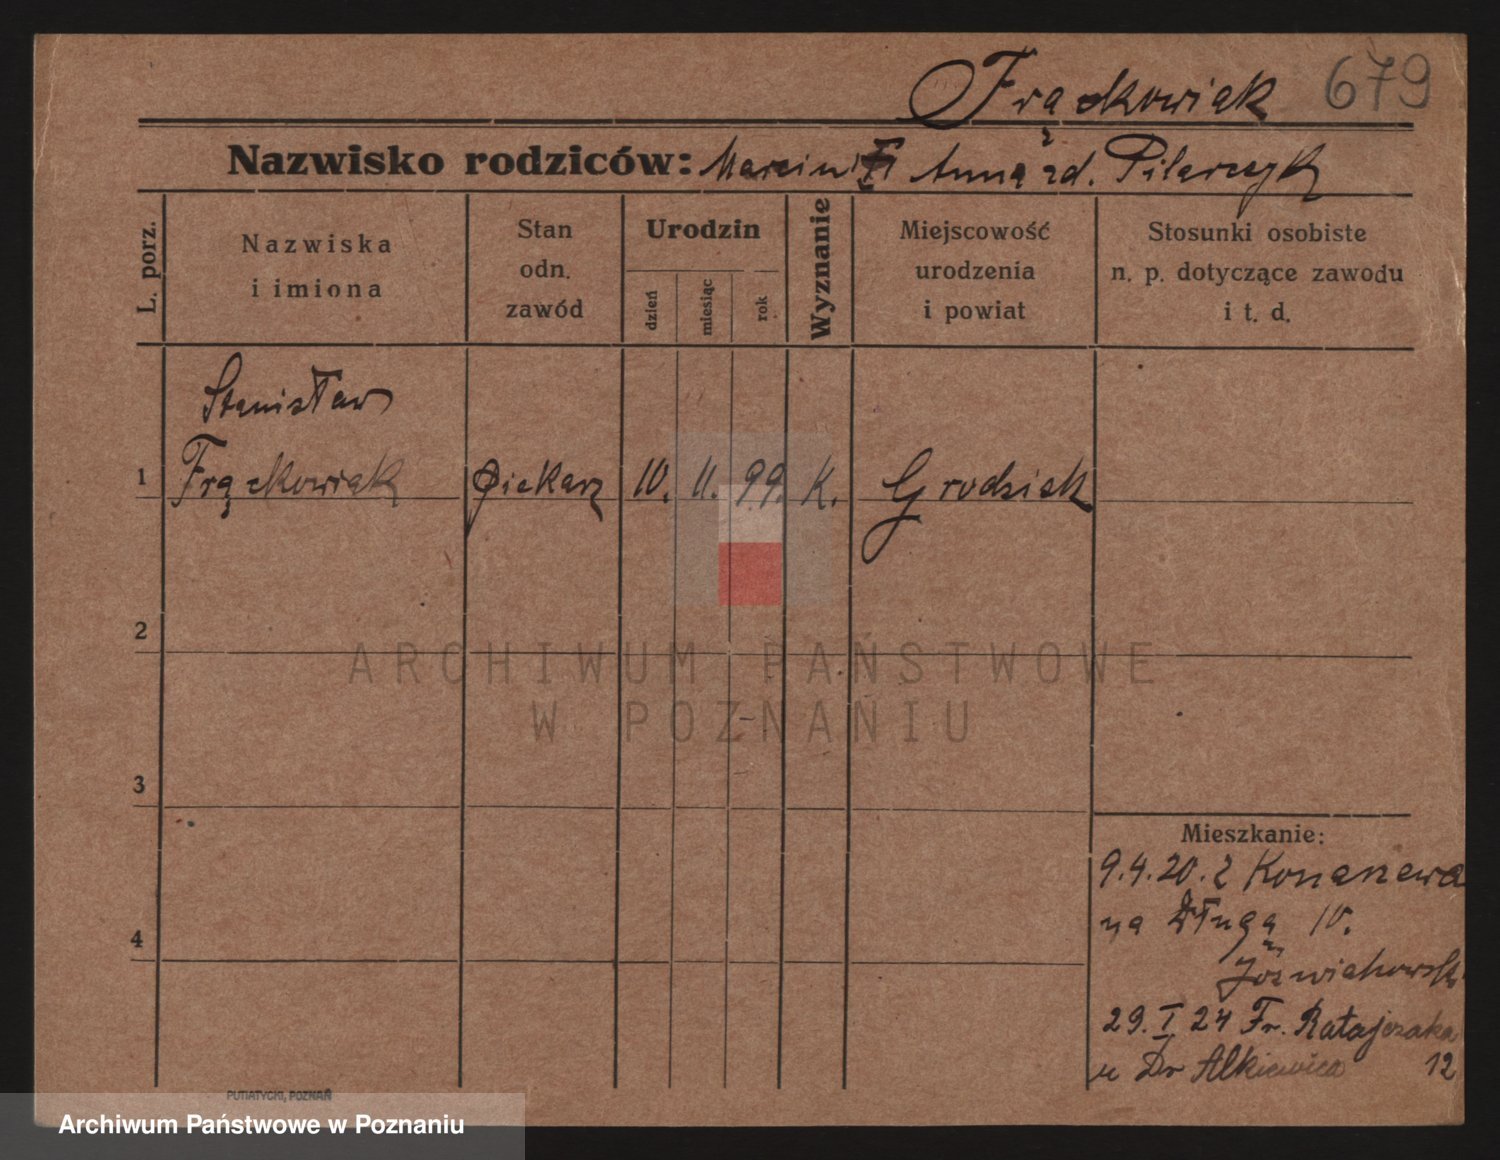 Frąckowiak 679
Nazwisko rodziców: Marcin i Anna zd. Pilarczyk
L. porz.
Nazwiska
i imiona
Stan
odn.
zawód
Urodzin
dzień
miesiąc
rok
Wyznanie
Miejscowość
urodzenia
i powiat
Stosunki osobiste
n. p. dotyczące zawodu
i t. d.
Stanisław
1 Frąckowiak piekarz 10. 11. 99. K. Grodzisk
2
3
4
ARCHIWUM PAŃSTWOWE
W POZNANIU
Mieszkanie:
9.4.20. z Konarzewa
na Długą 10.
29. I 24 Fr. Ratajczaka
u Dr Alkiewicza 12
PUTIATYCKI, POZNAŃ
Archiwum Państwowe w Poznaniu